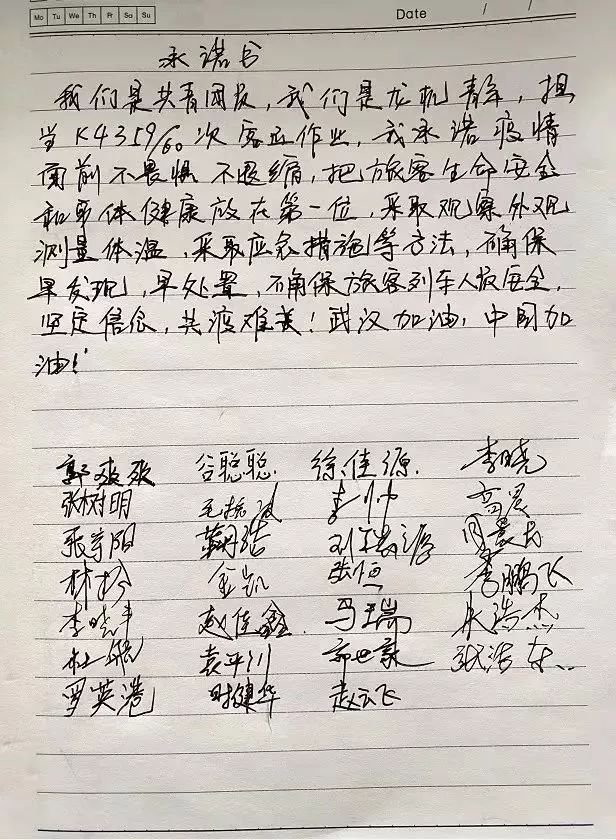 Mo Tu We Th Fr Sa Su
Date / /
承诺书
我们是共青团员,我们是龙机青年,担
当K4359/60次客运作业,我承诺疫情
面前不畏惧不退缩,把旅客生命安全
和身体健康放在第一位,采取观察外观
测量体温,采取应急措施等方法,确保
早发现,早处置,确保旅客列车人员安全,
坚定信念,共渡难关!武汉加油,中国加
油!
郭爽爽 谷聪聪 徐佳源 李晓
张树明 李帅 高晨
张宇阳
林松 金凯 张恒 李鹏飞
李晓丰 赵佳鑫 马瑞 朱浩杰
杜航 袁平川 郭世豪 张浩东
罗英港 时建华 赵云飞